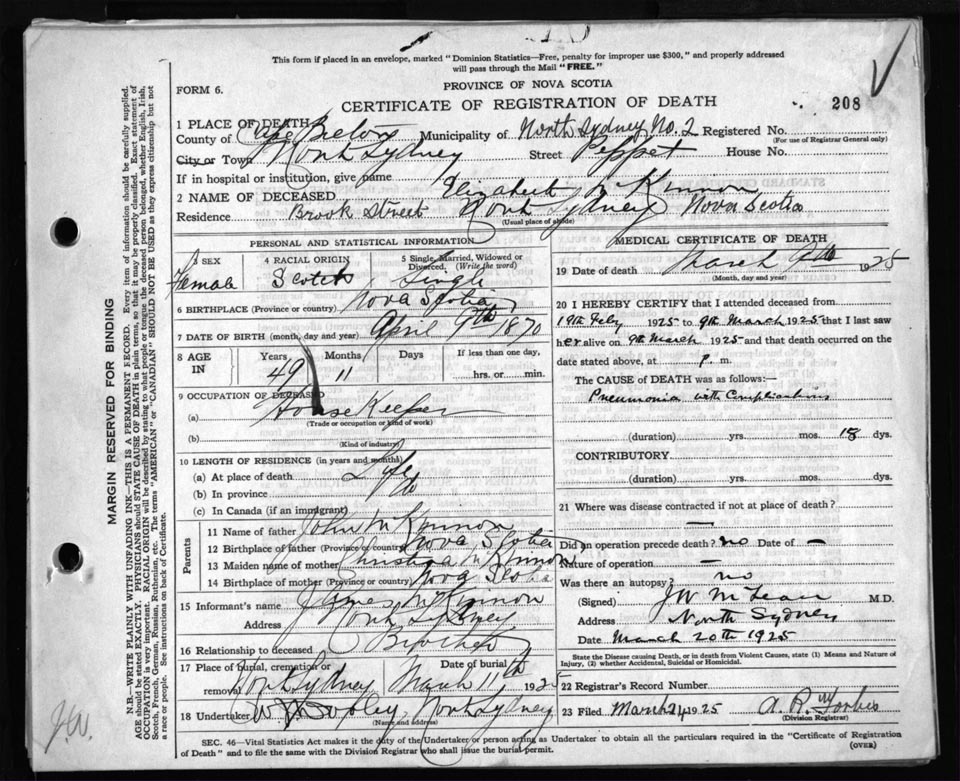 This form if placed in an envelope, marked "Dominion Statistics—Free, penalty for improper use $300," and properly addressed
will pass through the Mail "FREE."
FORM 6.
PROVINCE OF NOVA SCOTIA
CERTIFICATE OF REGISTRATION OF DEATH
208
1 PLACE OF DEATH
County of Cape Breton Municipality of North Sydney No. 2 Registered No.
(For use of Registrar General only)
City or Town North Sydney Street Peppet House No.
If in hospital or institution, give name
2 NAME OF DECEASED Elizabeth McKinnon
Residence Brook Street North Sydney Nova Scotia
(Usual place of abode)
PERSONAL AND STATISTICAL INFORMATION
3 SEX Female
4 RACIAL ORIGIN Scotch
5 Single, Married, Widowed or Divorced. (Write the word) Single
6 BIRTHPLACE (Province or country) Nova Scotia
7 DATE OF BIRTH (month, day and year) April 9th 1870
8 AGE IN Years 49 Months 11 Days If less than one day, hrs. or min.
9 OCCUPATION OF DECEASED
(a) House Keeper
(Trade or occupation or kind of work)
(b)
(Kind of industry)
10 LENGTH OF RESIDENCE (in years and months)
(a) At place of death Life
(b) In province do
(c) In Canada (if an immigrant)
Parents
11 Name of father John McKinnon
12 Birthplace of father (Province or country) Nova Scotia
13 Maiden name of mother
14 Birthplace of mother (Province or country) Nova Scotia
15 Informant's name James McKinnon
Address North Sydney
16 Relationship to deceased Brother
17 Place of burial, cremation or removal North Sydney Date of burial March 11th 1925
18 Undertaker North Sydney
(Name and address)
MEDICAL CERTIFICATE OF DEATH
19 Date of death March 9th 1925
(Month, day and year)
20 I HEREBY CERTIFY that I attended deceased from
19th Feby 1925 to 9th March 1925 that I last saw
her alive on 9th March 1925 and that death occurred on the
date stated above, at P. m.
The CAUSE of DEATH was as follows:—
Pneumonia with Complications
(duration) yrs. mos. 18 dys.
CONTRIBUTORY.
(duration) yrs. mos. dys.
21 Where was disease contracted if not at place of death?
—
Did an operation precede death? no Date of —
Nature of operation —
Was there an autopsy? no
(Signed) J W McLean M.D.
Address North Sydney
Date March 20th 1925
State the Disease causing Death, or in death from Violent Causes, state (1) Means and Nature of
Injury, (2) whether Accidental, Suicidal or Homicidal.
22 Registrar's Record Number
23 Filed March 24 1925 A. R. Forbes
(Division Registrar)
SEC. 46—Vital Statistics Act makes it the duty of the Undertaker or person acting as Undertaker to obtain all the particulars required in the "Certificate of Registration
of Death" and to file the same with the Division Registrar who shall issue the burial permit.
(OVER)
MARGIN RESERVED FOR BINDING
N.B.—WRITE PLAINLY WITH UNFADING INK—THIS IS A PERMANENT RECORD. Every item of information should be carefully supplied.
AGE should be stated EXACTLY. PHYSICIANS should STATE CAUSE OF DEATH in plain terms, so that it may be properly classified. Exact statement of
OCCUPATION is very important. RACIAL ORIGIN will be described by stating to what people or tongue the deceased person belonged, whether English, Irish,
Scotch, French, German, Russian, Ruthenian, etc. The terms "AMERICAN" or "CANADIAN" SHOULD NOT BE USED as they express citizenship but not
a race or people. See instructions on back of Certificate.